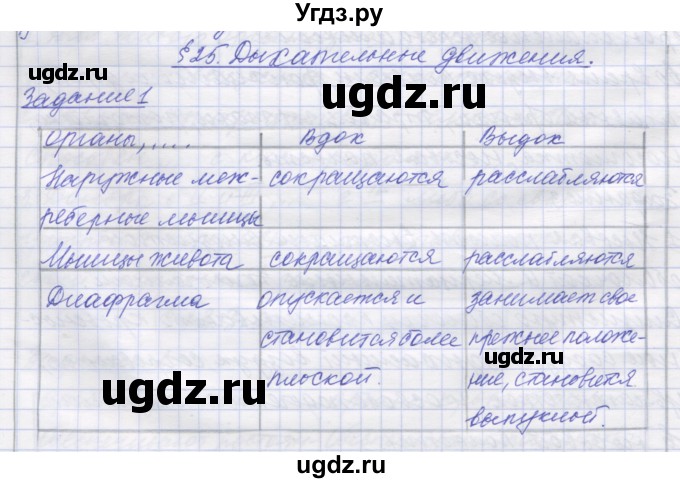 Угдз.ру
§25. Дыхательные движения.
Задание 1
органы, .... Вдох Выдох
Наружные меж- сокращаются расслабляются
реберные мышцы
Мышцы живота сокращаются расслабляются
Диафрагма опускается и занимает свое
становится более прежнее положе-
плоской. ние, становится
выпуклой.
ugdz.ru
ugdz.ru
ugdz.ru
ugdz.ru
ugdz.ru